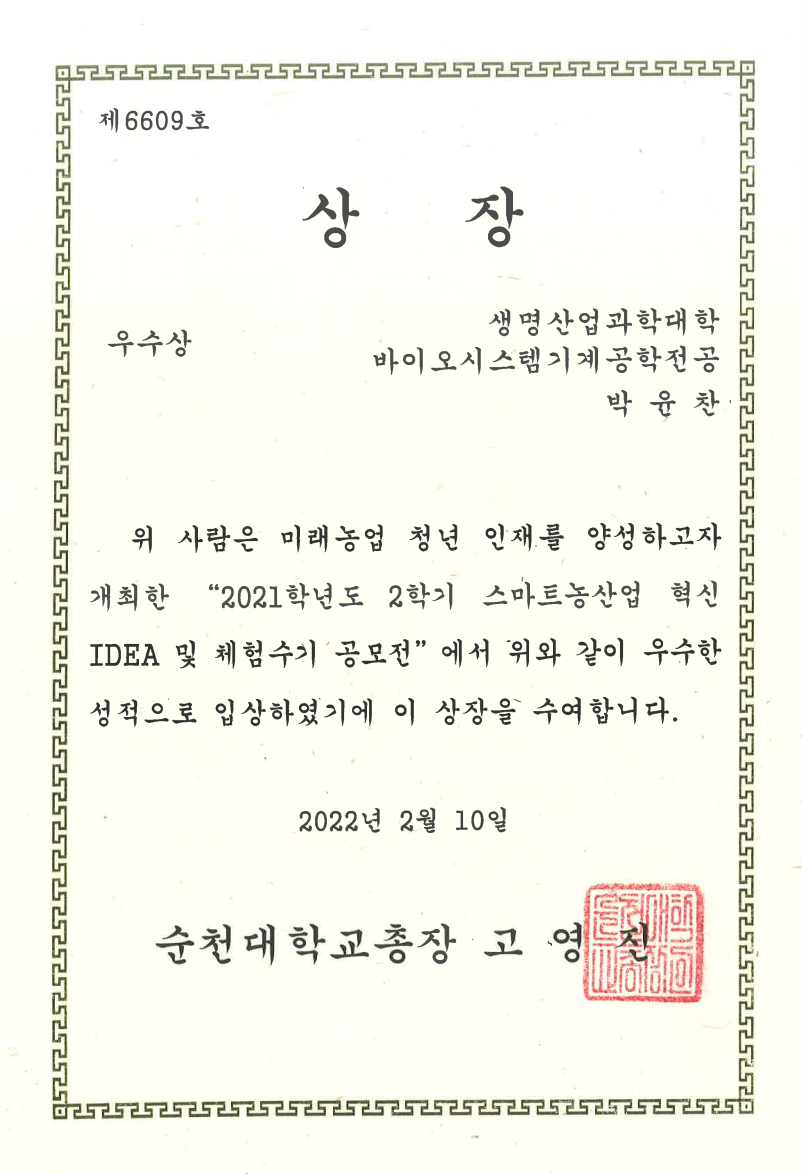 제6609호
상 장
우수상
생명산업과학대학
바이오시스템기계공학전공
박 윤 찬
위 사람은 미래농업 청년 인재를 양성하고자
개최한 “2021학년도 2학기 스마트농산업 혁신
IDEA 및 체험수기 공모전” 에서 위와 같이 우수한
성적으로 입상하였기에 이 상장을 수여합니다.
2022년 2월 10일
순천대학교총장 고 영 진